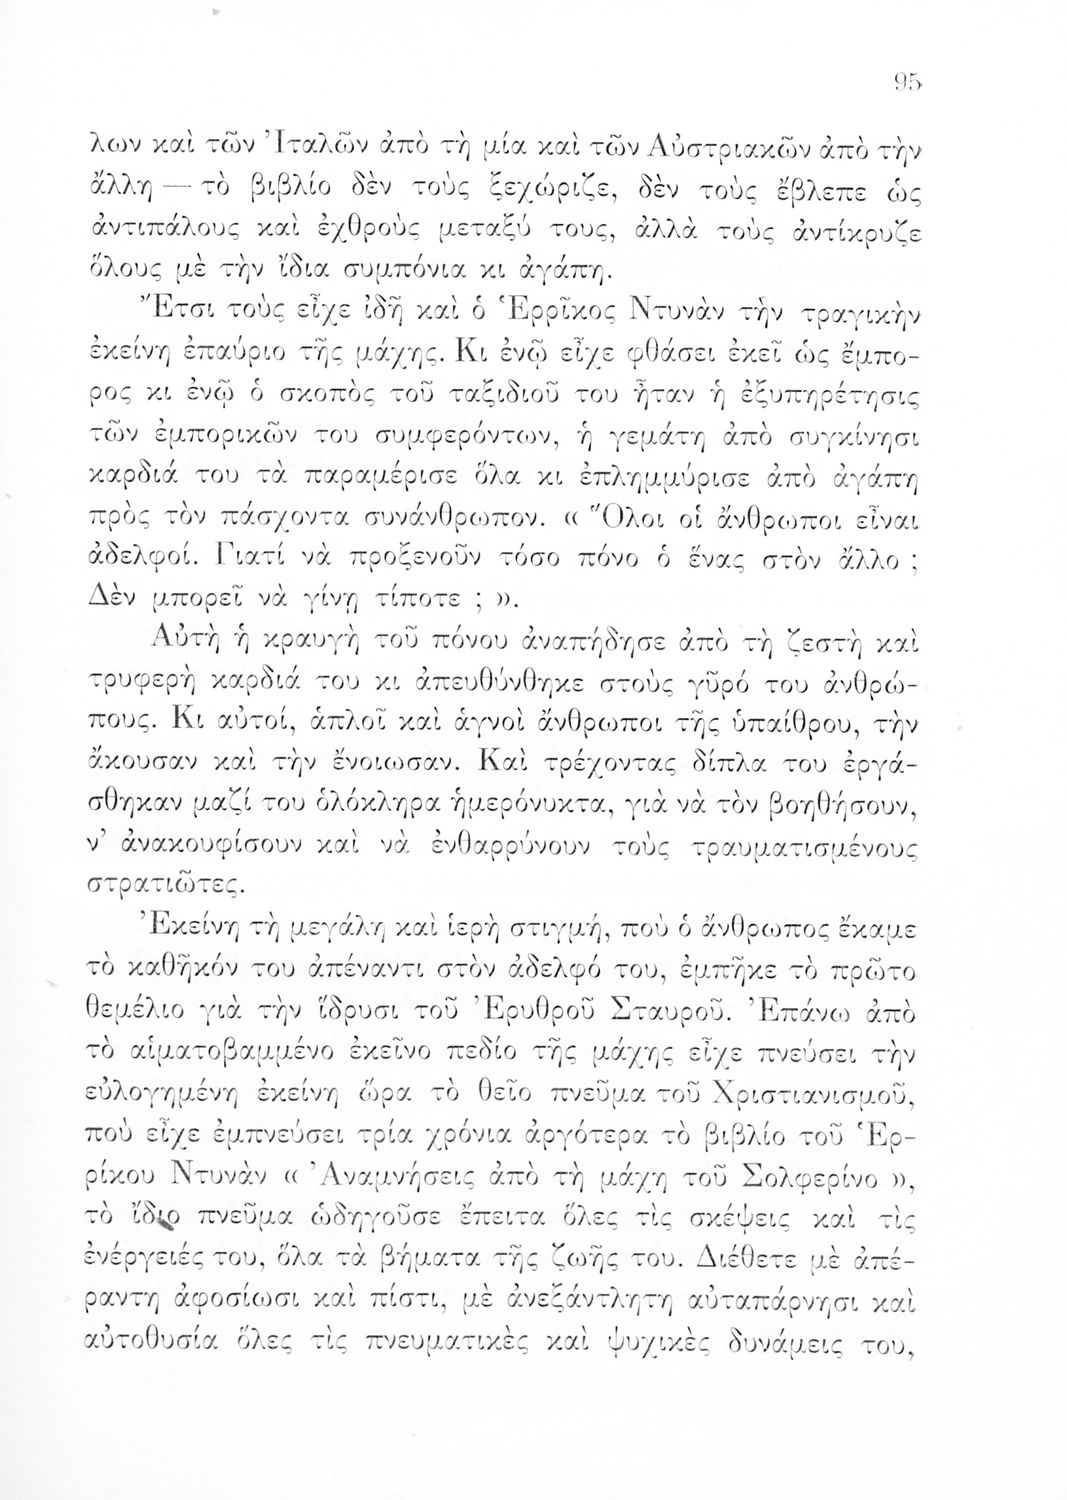 95
λων καὶ τῶν Ἰταλῶν ἀπὸ τὴ μία καὶ τῶν Αὐστριακῶν ἀπὸ τὴν
ἄλλη — τὸ βιβλίο δὲν τοὺς ξεχώριζε, δὲν τοὺς ἔβλεπε ὡς
ἀντιπάλους καὶ ἐχθροὺς μεταξύ τους, ἀλλὰ τοὺς ἀντίκρυζε
ὅλους μὲ τὴν ἴδια συμπόνια κι ἀγάπη.
Ἔτσι τοὺς εἶχε ἰδῆ καὶ ὁ Ἑρρῖκος Ντυνὰν τὴν τραγικὴν
ἐκείνη ἐπαύριο τῆς μάχης. Κι ἐνῷ εἶχε φθάσει ἐκεῖ ὡς ἔμπο-
ρος κι ἐνῷ ὁ σκοπὸς τοῦ ταξιδιοῦ του ἦταν ἡ ἐξυπηρέτησις
τῶν ἐμπορικῶν του συμφερόντων, ἡ γεμάτη ἀπὸ συγκίνησι
καρδιά του τὰ παραμέρισε ὅλα κι ἐπλημμύρισε ἀπὸ ἀγάπη
πρὸς τὸν πάσχοντα συνάνθρωπον. « Ὅλοι οἱ ἄνθρωποι εἶναι
ἀδελφοί. Γιατί νὰ προξενοῦν τόσο πόνο ὁ ἕνας στὸν ἄλλο ;
Δὲν μπορεῖ νὰ γίνῃ τίποτε ; ».
Αὐτὴ ἡ κραυγὴ τοῦ πόνου ἀναπήδησε ἀπὸ τὴ ζεστὴ καὶ
τρυφερὴ καρδιά του κι ἀπευθύνθηκε στοὺς γῦρό του ἀνθρώ-
πους. Κι αὐτοί, ἁπλοῖ καὶ ἁγνοὶ ἄνθρωποι τῆς ὑπαίθρου, τὴν
ἄκουσαν καὶ τὴν ἔνοιωσαν. Καὶ τρέχοντας δίπλα του ἐργά-
σθηκαν μαζί του ὁλόκληρα ἡμερόνυκτα, γιὰ νὰ τὸν βοηθήσουν,
ν’ ἀνακουφίσουν καὶ νὰ ἐνθαρρύνουν τοὺς τραυματισμένους
στρατιῶτες.
Ἐκείνη τὴ μεγάλη καὶ ἱερὴ στιγμή, ποὺ ὁ ἄνθρωπος ἔκαμε
τὸ καθῆκόν του ἀπέναντι στὸν ἀδελφό του, ἐμπῆκε τὸ πρῶτο
θεμέλιο γιὰ τὴν ἵδρυσι τοῦ Ἐρυθροῦ Σταυροῦ. Ἐπάνω ἀπὸ
τὸ αἱματοβαμμένο ἐκεῖνο πεδίο τῆς μάχης εἶχε πνεύσει τὴν
εὐλογημένη ἐκείνη ὥρα τὸ θεῖο πνεῦμα τοῦ Χριστιανισμοῦ,
ποὺ εἶχε ἐμπνεύσει τρία χρόνια ἀργότερα τὸ βιβλίο τοῦ Ἑρ-
ρίκου Ντυνὰν « Ἀναμνήσεις ἀπὸ τὴ μάχη τοῦ Σολφερίνο »,
τὸ ἴδιο πνεῦμα ὡδηγοῦσε ἔπειτα ὅλες τὶς σκέψεις καὶ τὶς
ἐνέργειές του, ὅλα τὰ βήματα τῆς ζωῆς του. Διέθετε μὲ ἀπέ-
ραντη ἀφοσίωσι καὶ πίστι, μὲ ἀνεξάντλητη αὐταπάρνησι καὶ
αὐτοθυσία ὅλες τὶς πνευματικὲς καὶ ψυχικὲς δυνάμεις του,